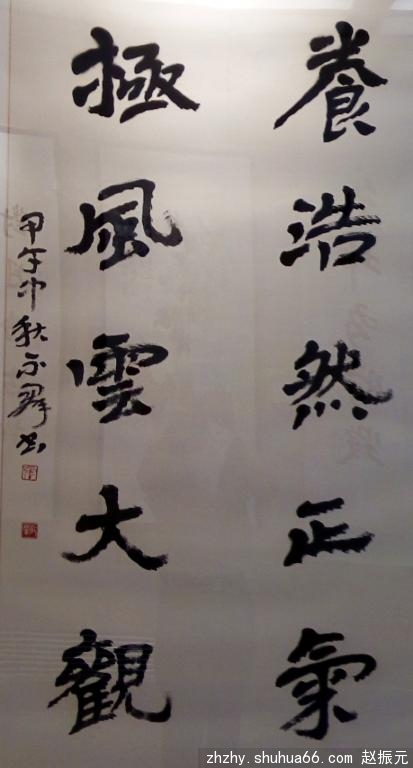 養浩然正氣
極風雲大觀
甲午中秋示群书
zhzhy.shuhua66.com 赵振元